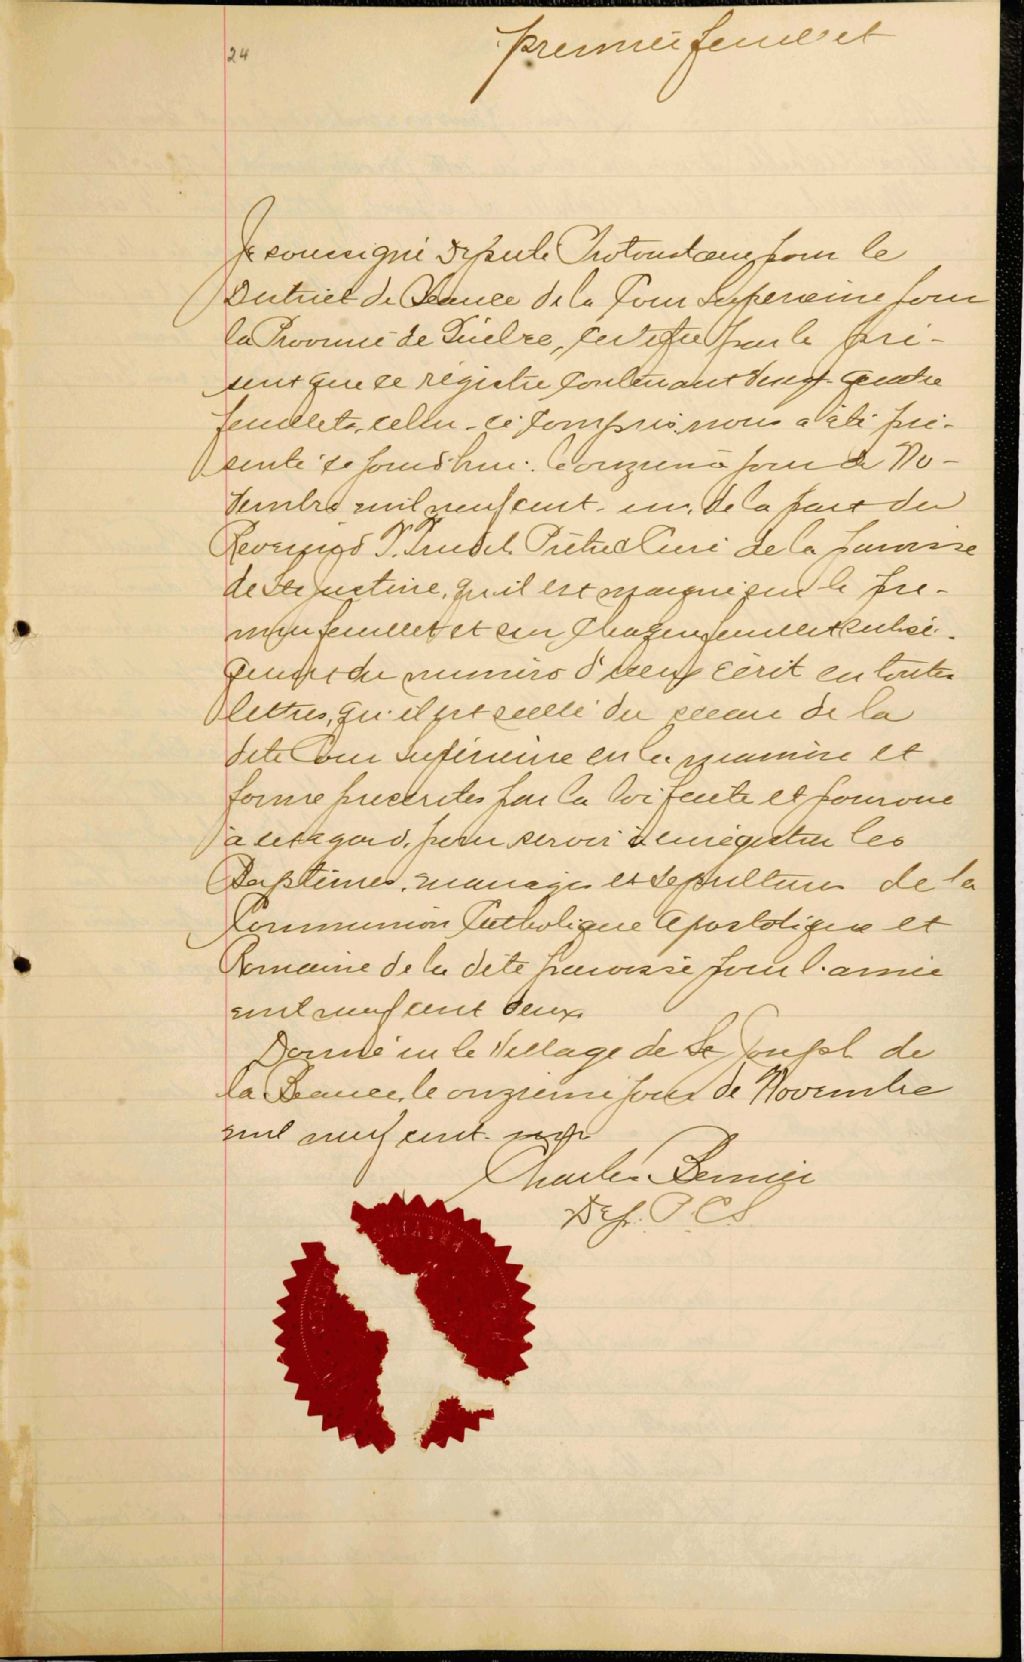 24
premier feuillet
Je soussigné Député Protonotaire pour le
District de Beauce de la Cour Supérieure pour
la Province de Québec, certifie par le pré-
sent que ce régistre contenant vingt-quatre
feuillets, celui-ci compris, nous a été pré-
senté ce jourd'hui le onzième jour de No-
vembre mil neuf cent un, de la part du
Révérend Trudel Prêtre Curé de la paroisse
de Ste Justine, qu'il est marqué sur le pre-
mier feuillet et sur chaque feuillet subsé-
quent du numéro d'iceux écrit en toutes
lettres, qu'il est scellé du sceau de la
dite Cour Supérieure en la manière et
forme prescrites par la loi faite et pourvue
à cet égard, pour servir à enrégistrer les
Baptêmes, mariages et sépultures de la
Communion Catholique Apostolique et
Romaine de la dite paroisse pour l'année
mil neuf cent deux.
Donné en le Village de St Joseph de
la Beauce, le onzième jour de Novembre
mil neuf cent un
Charles Bernier
Dép. P. C. S.